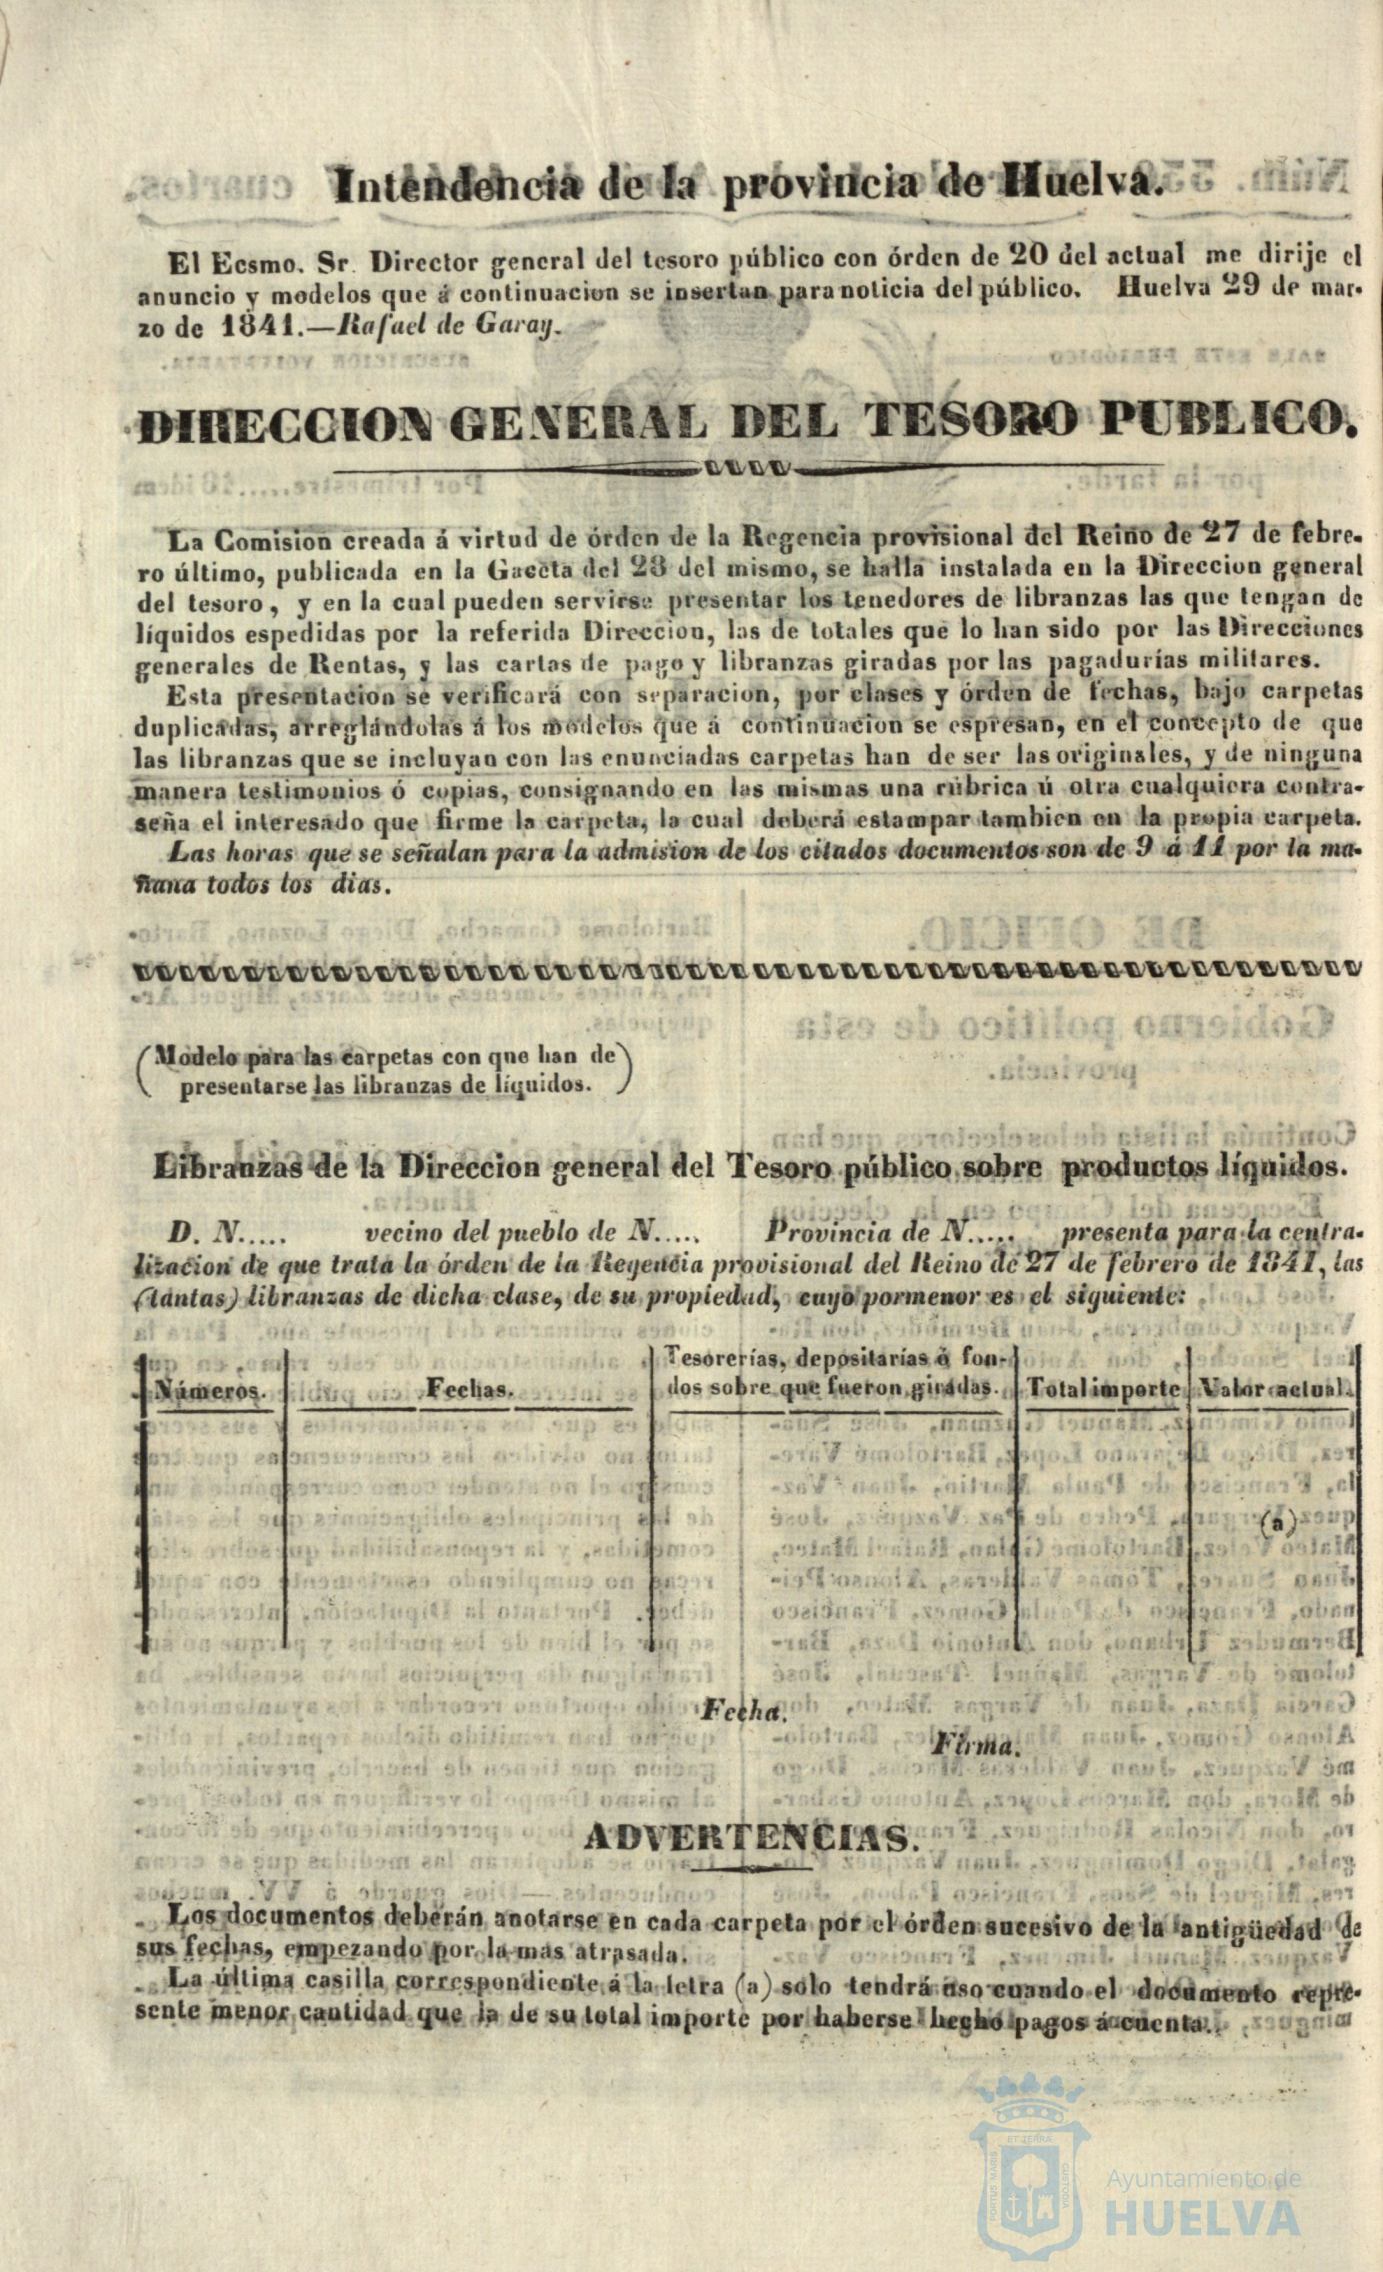 Intendencia de la provincia de Huelva.
El Ecsmo. Sr. Director general del tesoro público con órden de 20 del actual me dirije el
anuncio y modelos que á continuacion se insertan para noticia del público. Huelva 29 de mar-
zo de 1841.—Rafael de Garay.
DIRECCION GENERAL DEL TESORO PUBLICO.
La Comision creada á virtud de órden de la Regencia provisional del Reino de 27 de febre-
ro último, publicada en la Gaceta del 28 del mismo, se halla instalada en la Direccion general
del tesoro, y en la cual pueden servirse presentar los tenedores de libranzas las que tengan de
líquidos espedidas por la referida Direccion, las de totales que lo han sido por las Direcciones
generales de Rentas, y las cartas de pago y libranzas giradas por las pagadurías militares.
Esta presentacion se verificará con separacion, por clases y órden de fechas, bajo carpetas
duplicadas, arreglándolas á los modelos que á continuacion se espresan, en el concepto de que
las libranzas que se incluyan con las enunciadas carpetas han de ser las originales, y de ninguna
manera testimonios ó copias, consignando en las mismas una rúbrica ú otra cualquiera contra-
seña el interesado que firme la carpeta, la cual deberá estampar tambien en la propia carpeta.
Las horas que se señalan para la admision de los citados documentos son de 9 á 11 por la ma-
ñana todos los dias.
(Modelo para las carpetas con que han de
presentarse las libranzas de líquidos.)
Libranzas de la Direccion general del Tesoro público sobre productos líquidos.
D. N..... vecino del pueblo de N..... Provincia de N..... presenta para la centra-
lizacion de que trata la órden de la Regencia provisional del Reino de 27 de febrero de 1841, las
(tantas) libranzas de dicha clase, de su propiedad, cuyo pormenor es el siguiente:
Números. Fechas. Tesorerías, depositarías ó fon-
dos sobre que fueron giradas. Total importe Valor actual.
(a)
Fecha.
Firma.
ADVERTENCIAS.
Los documentos deberán anotarse en cada carpeta por el órden sucesivo de la antigüedad de
sus fechas, empezando por la mas atrasada.
La última casilla correspondiente á la letra (a) solo tendrá uso cuando el documento repre-
sente menor cantidad que la de su total importe por haberse hecho pagos á cuenta.
ET TERRAE
PORTUS MARIS
CUSTODIA
Ayuntamiento de
HUELVA